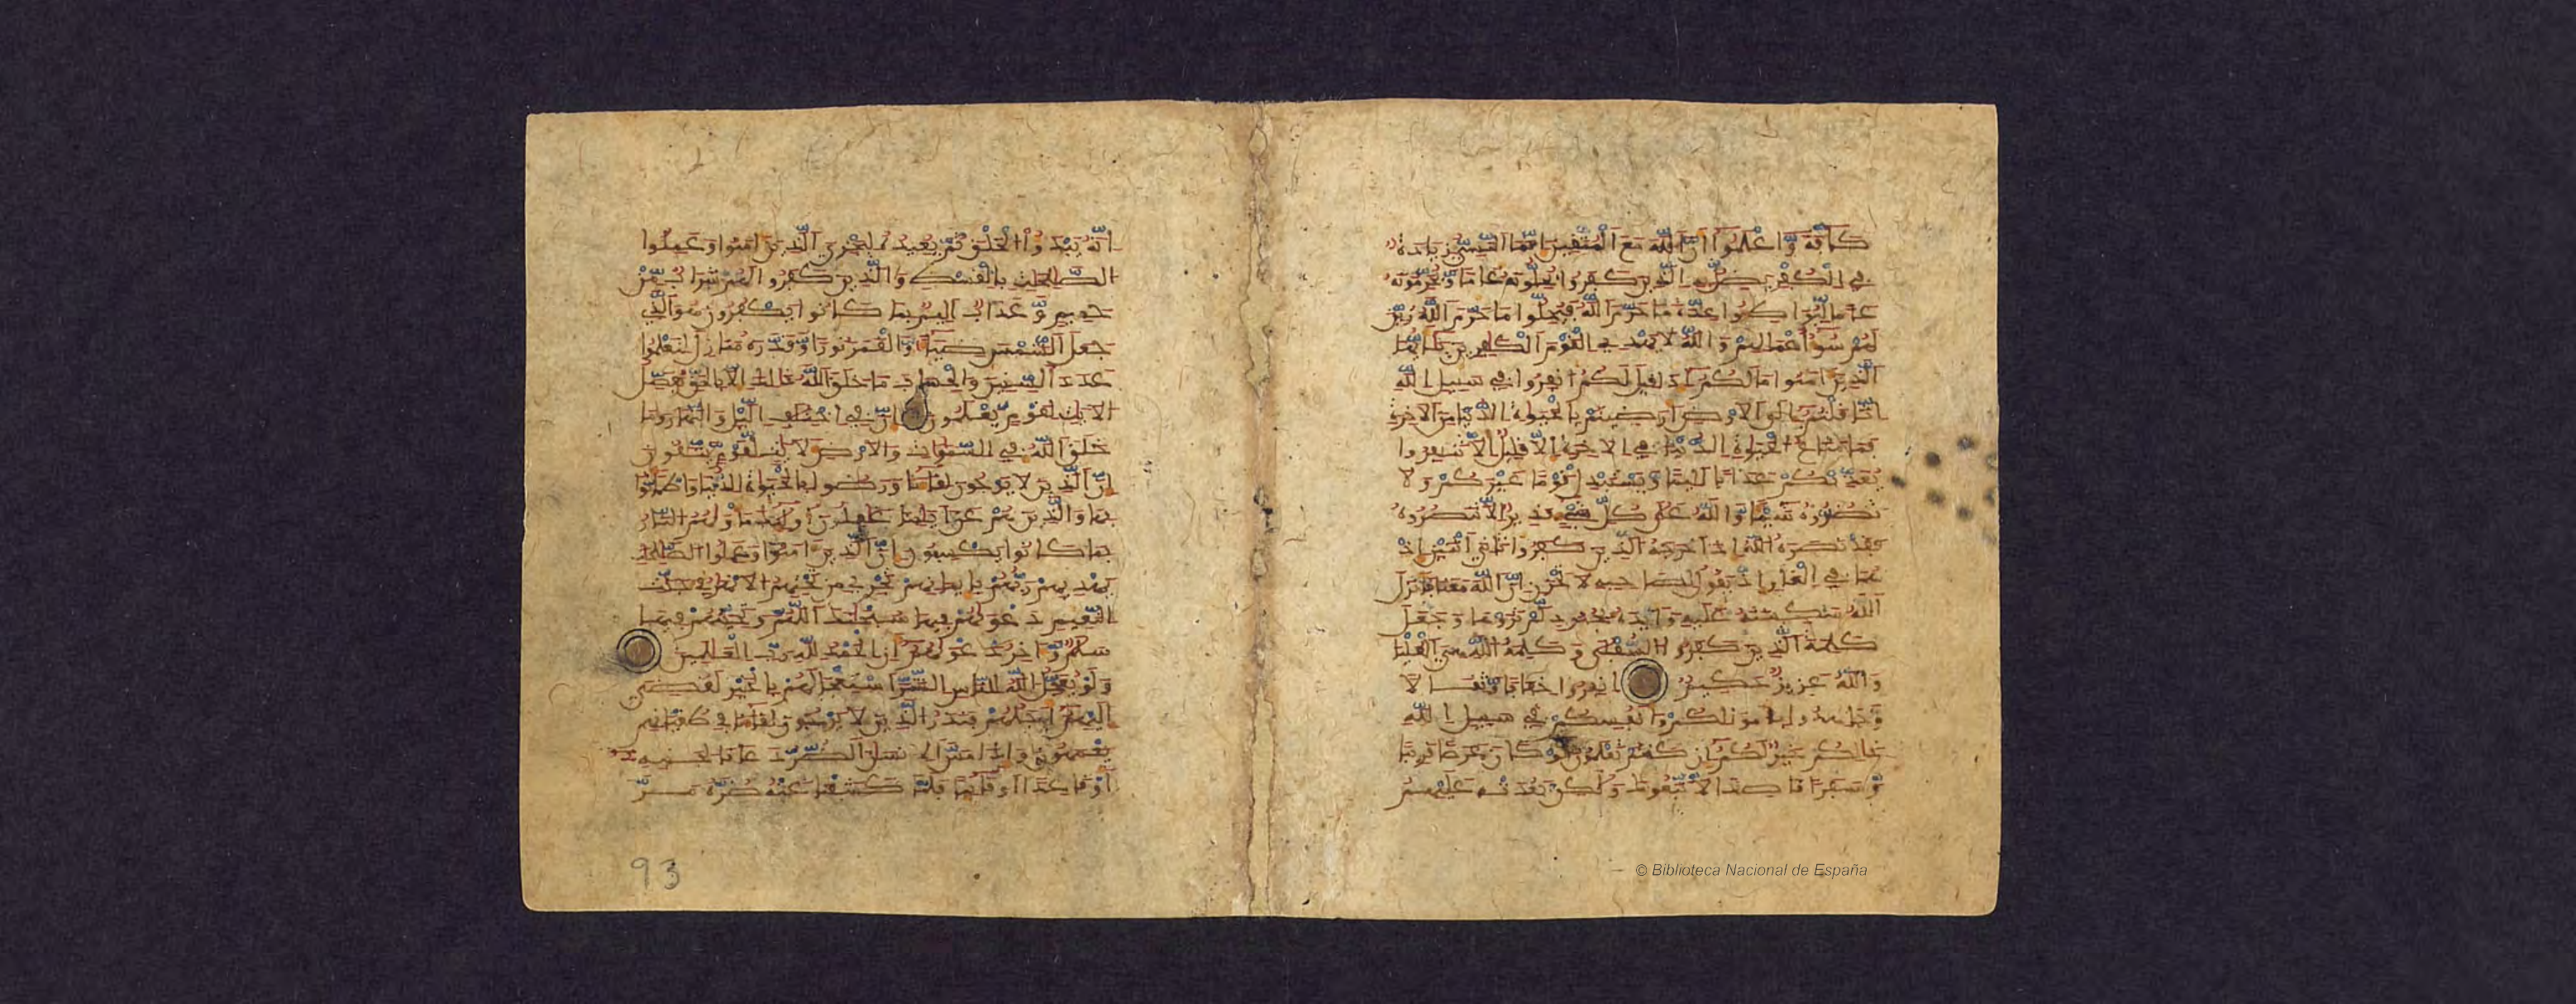 كافة واعلموا ان الله مع المتقين انما النسي زيادة
في الكفر يضل به الذين كفروا يحلونه عاما ويحرمونه
عاما ليواطوا عدة ما حرم الله فيحلوا ما حرم الله زين
لهم سوء اعملهم والله لا يهدي القوم الكفرين يايها
الذين امنوا ما لكم اذا قيل لكم انفروا في سبيل الله
اثاقلتم الى الارض ارضيتم بالحيوة الدنيا من الاخرة
فما متاع الحيوة الدنيا في الاخرة الا قليل الا تنفروا
يعذبكم عذابا اليما ويستبدل قوما غيركم ولا
تضروه شيا والله على كل شيء قدير الا تنصروه
فقد نصره الله اذ اخرجه الذين كفروا ثاني اثنين اذ
هما في الغار اذ يقول لصاحبه لا تحزن ان الله معنا فانزل
الله سكينته عليه وايده بجنود لم تروها وجعل
كلمة الذين كفروا السفلى وكلمة الله هي العليا
والله عزيز حكيم انفروا خفافا وثقالا
وجهدوا باموالكم وانفسكم في سبيل الله
ذالكم خير لكم ان كنتم تعلمون لو كان عرضا قريبا
وسفرا قاصدا لاتبعوك ولكن بعدت عليهم
انه يبدوا الخلق ثم يعيده ليجزي الذين امنوا وعملوا
الصلحت بالقسط والذين كفروا لهم شراب من
حميم وعذاب اليم بما كانوا يكفرون هو الذي
جعل الشمس ضياء والقمر نورا وقدره منازل لتعلموا
عدد السنين والحساب ما خلق الله ذلك الا بالحق نفصل
الايت لقوم يعلمون ان في اختلف اليل والنهار وما
خلق الله في السموات والارض لايت لقوم يتقون
ان الذين لا يرجون لقاءنا ورضوا بالحيوة الدنيا واطمانوا
بها والذين هم عن ايتنا غفلون اوليك ماويهم النار
بما كانوا يكسبون ان الذين امنوا وعملوا الصلحت
يهديهم ربهم بايمنهم تجري من تحتهم الانهر في جنت
النعيم دعويهم فيها سبحنك اللهم وتحيتهم فيها
سلم واخر دعويهم ان الحمد لله رب العلمين
ولو يعجل الله للناس الشر استعجالهم بالخير لقضي
اليهم اجلهم فنذر الذين لا يرجون لقاءنا في طغينهم
يعمهون واذا مس الانسن الضر دعانا لجنبه
او قاعدا او قايما فلما كشفنا عنه ضره مر
93
© Biblioteca Nacional de España